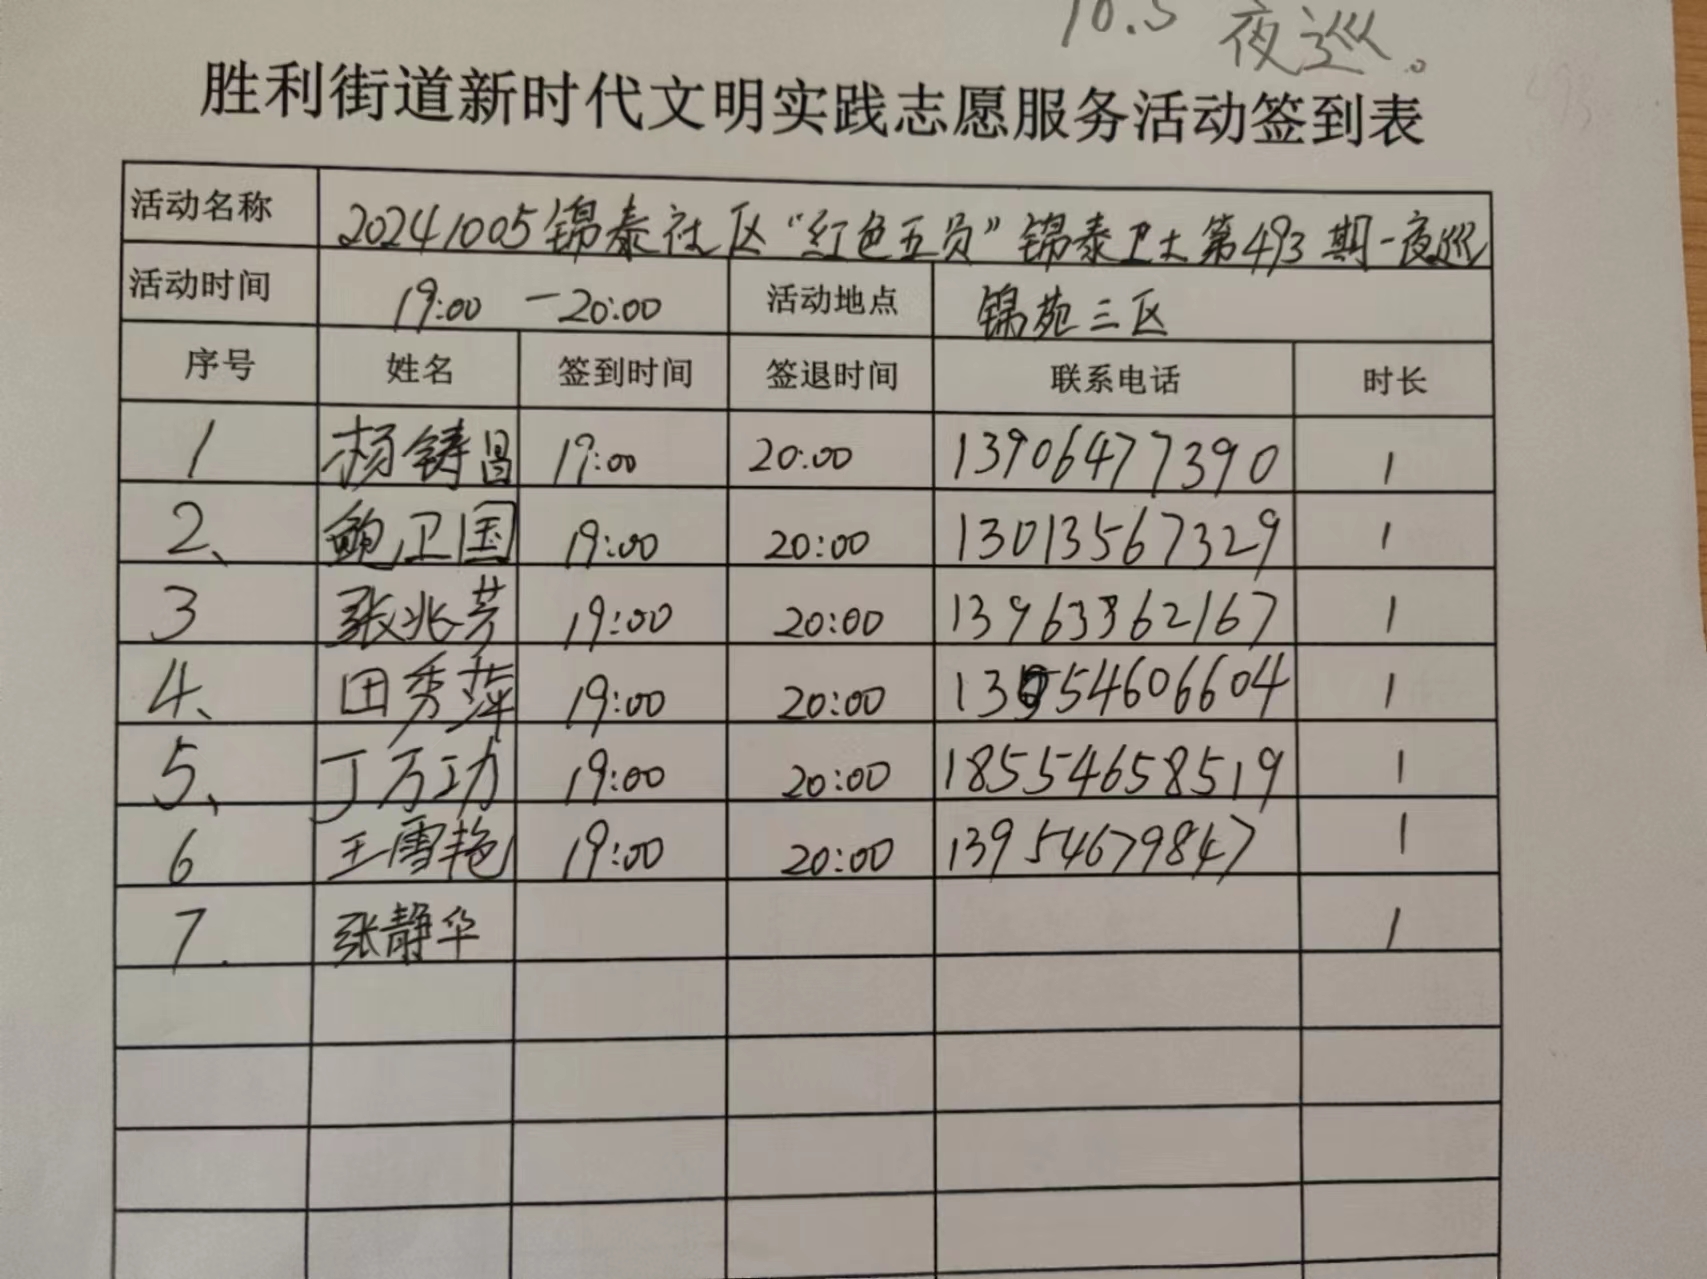 10.5 夜巡。
胜利街道新时代文明实践志愿服务活动签到表
活动名称 20241005锦泰社区“红色五员”锦泰卫士第493期-夜巡
活动时间 19:00 — 20:00 活动地点 锦苑三区
序号 姓名 签到时间 签退时间 联系电话 时长
1 杨铸昌 19:00 20:00 13906477390 1
2、 鲍卫国 19:00 20:00 13013567329 1
3 张兆芳 19:00 20:00 13963362167 1
4、 田秀萍 19:00 20:00 13954606604 1
5、 丁万功 19:00 20:00 18554658519 1
6 王雪艳 19:00 20:00 13954679847 1
7. 张静华 1